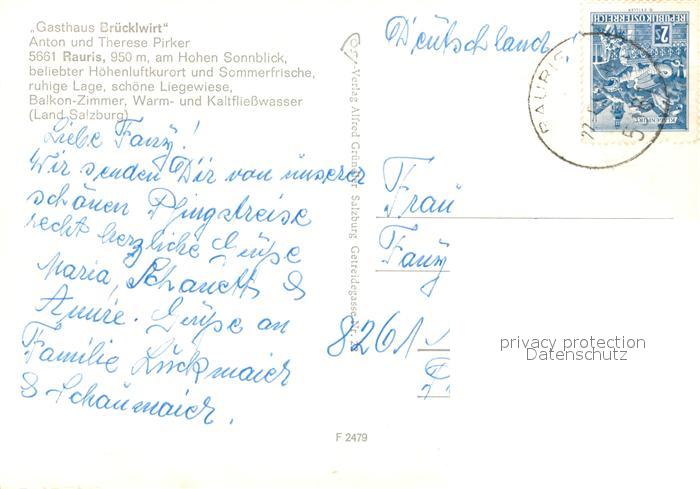 „Gasthaus Brücklwirt“
Anton und Therese Pirker
5661 Rauris, 950 m, am Hohen Sonnblick,
beliebter Höhenluftkurort und Sommerfrische,
ruhige Lage, schöne Liegewiese,
Balkon-Zimmer, Warm- und Kaltfließwasser
(Land Salzburg)
Liebe Fanny!
Wir senden Dir von unserer
schönen Pfingstreise
recht herzliche Grüße
Maria, &
Grüße an
Familie Lückmaier
& Schaumaier.
Verlag Alfred Gründler Salzburg Getreidegasse Nr.
F 2479
Deutschland
REPUBLIK ÖSTERREICH
2 S
KLAGENFURT
RAURIS
Frau
Fanny
8261
privacy protection
Datenschutz